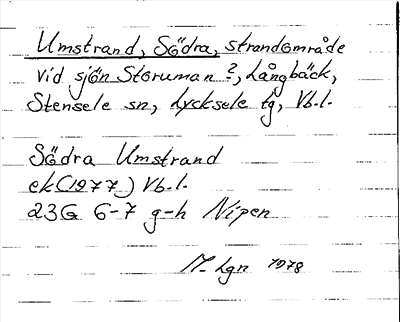 Umstrand, Södra, strandområde
vid sjön Storuman?, Långbäck,
Stensele sn, Lycksele tg, Vb.l.
Södra Umstrand
ek (1977) Vb.l.
23G 6-7 g-h Nipen
M-Lgn 1978